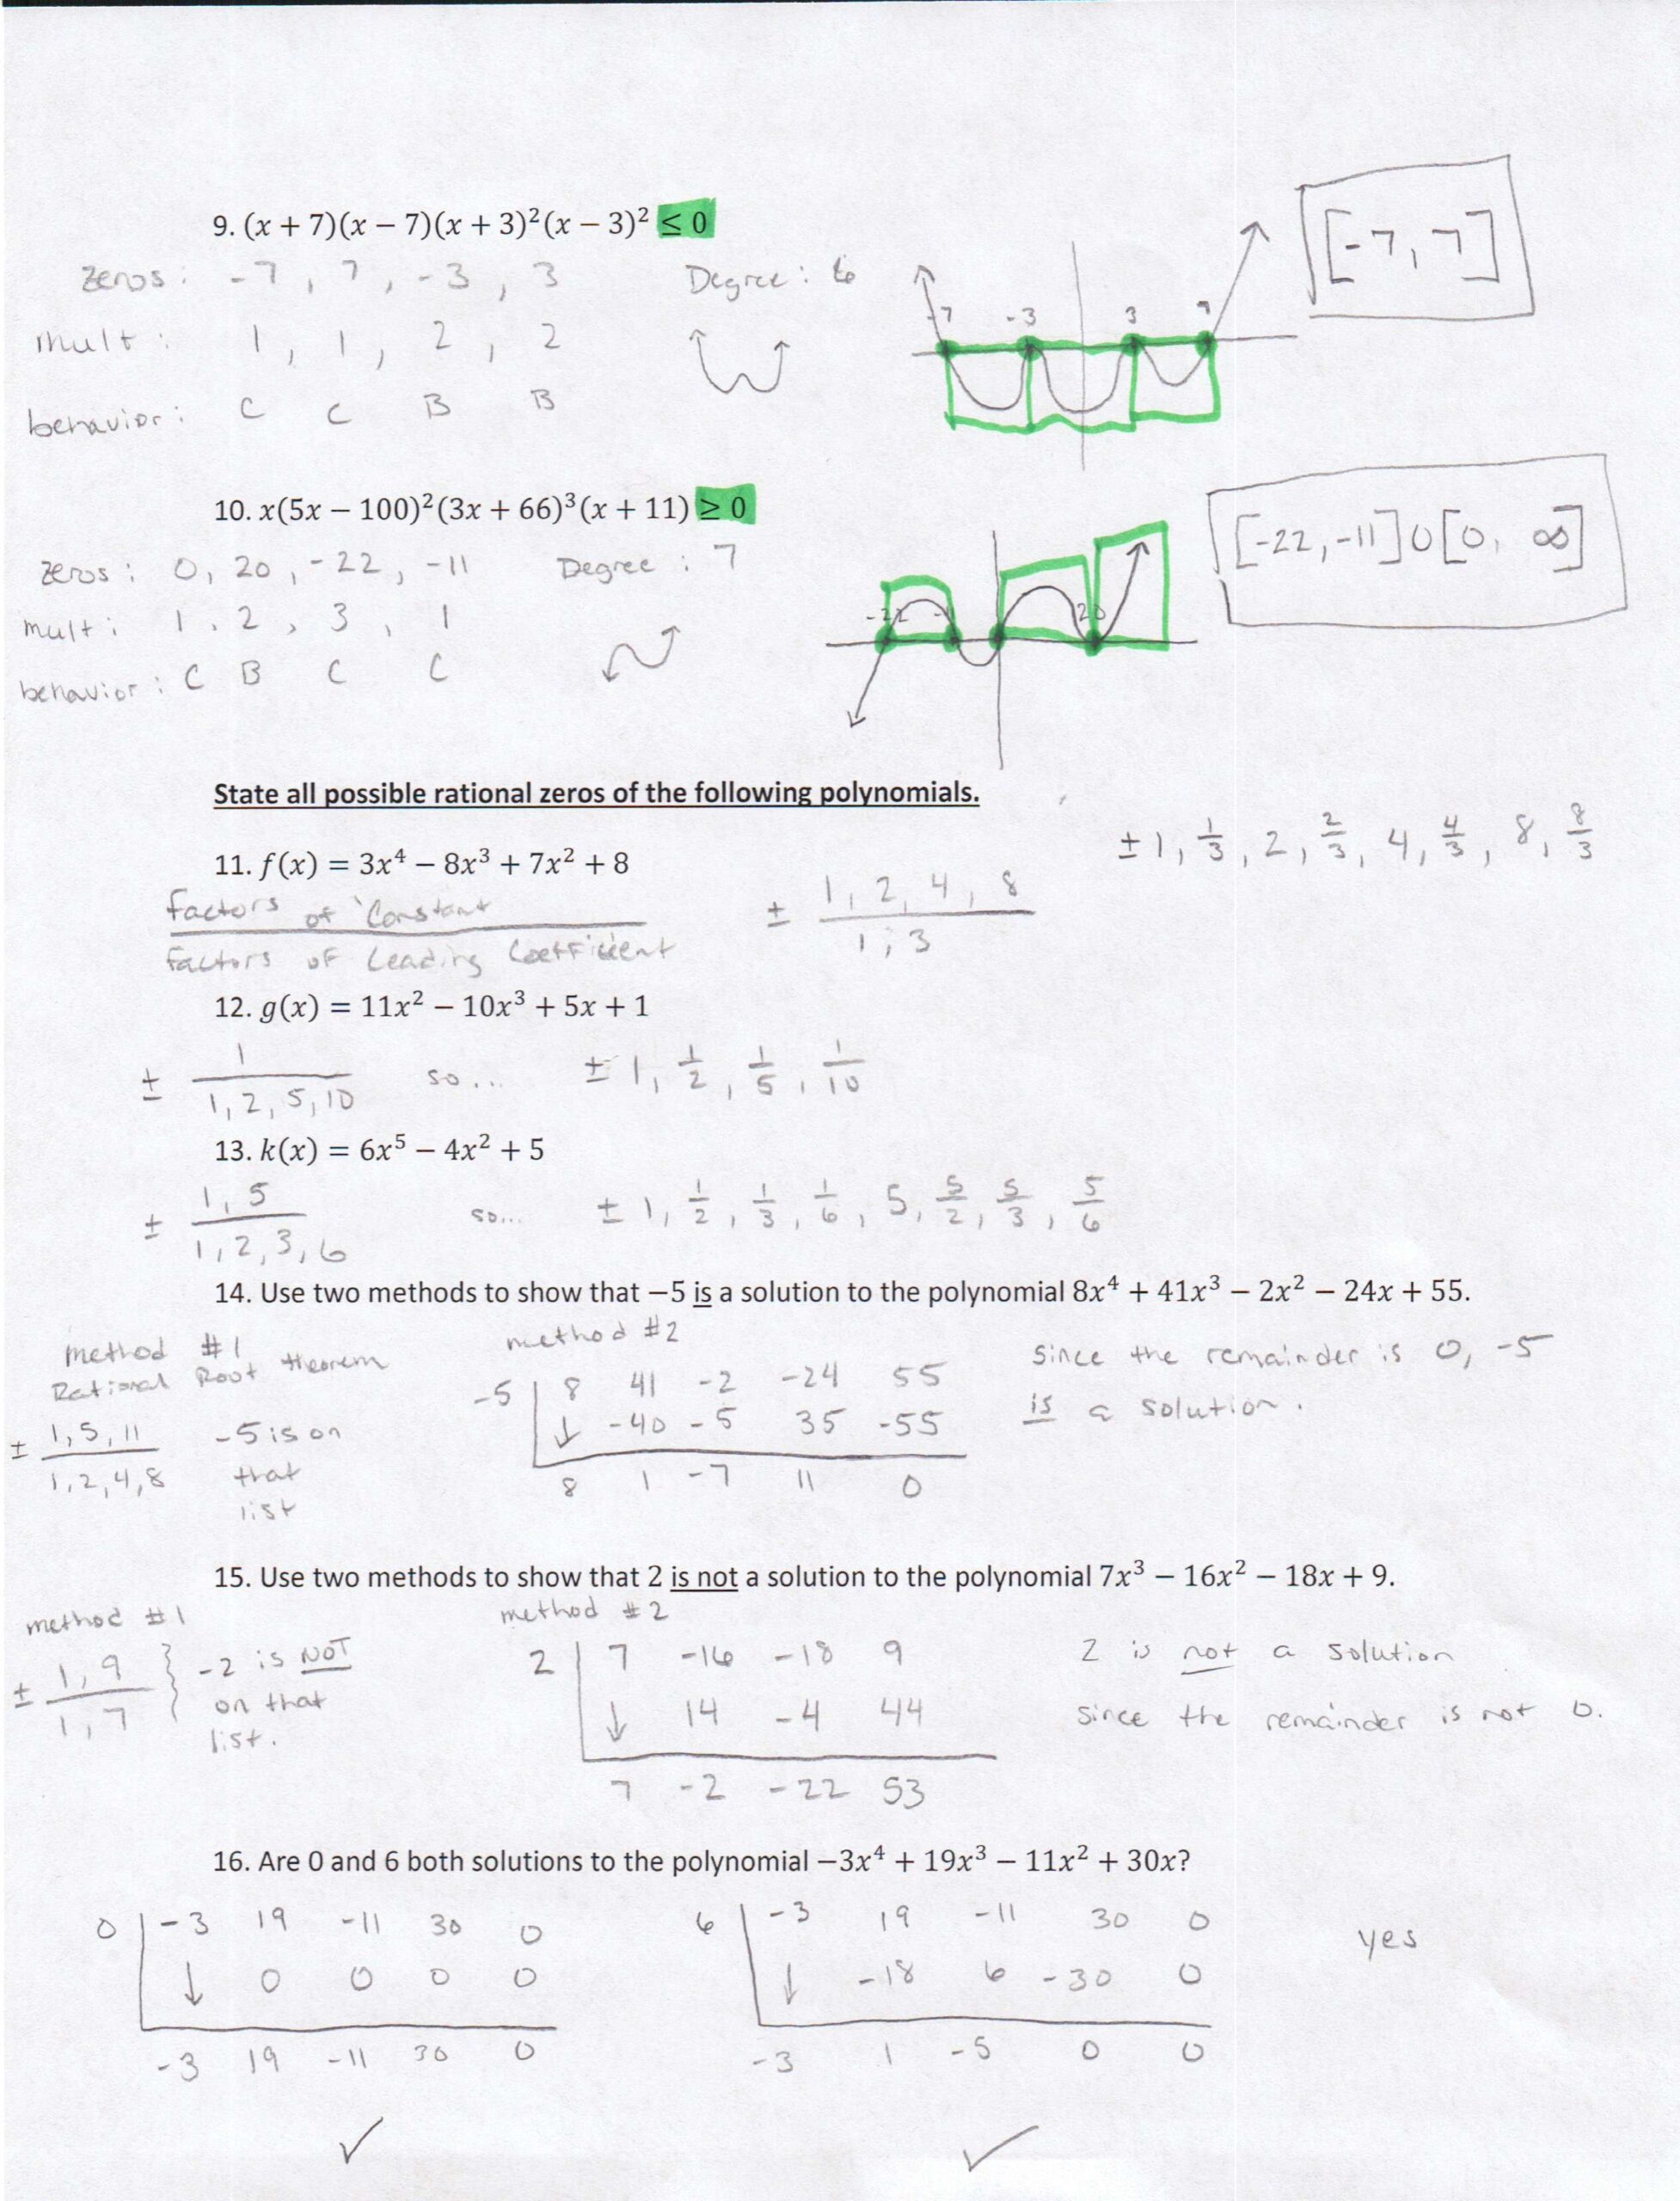 9. (x + 7)(x − 7)(x + 3)²(x − 3)² ≤ 0
Zeros : -7 , 7 , -3 , 3 Degree : 6
mult : 1 , 1 , 2 , 2
behavior : C C B B
-7 -3 3 7
[-7, 7]
10. x(5x − 100)²(3x + 66)³(x + 11) ≥ 0
Zeros : 0, 20, -22, -11 Degree : 7
mult : 1, 2, 3, 1
behavior : C B C C
-22 20
[-22, -11] U [0, ∞]
State all possible rational zeros of the following polynomials.
11. f(x) = 3x⁴ − 8x³ + 7x² + 8
± 1, 1/3, 2, 2/3, 4, 4/3, 8, 8/3
Factors of Constant
Factors of Leading Coefficient
± 1, 2, 4, 8
1, 3
12. g(x) = 11x² − 10x³ + 5x + 1
± 1
1, 2, 5, 10
so... ± 1, 1/2, 1/5, 1/10
13. k(x) = 6x⁵ − 4x² + 5
± 1, 5
1, 2, 3, 6
so... ± 1, 1/2, 1/3, 1/6, 5, 5/2, 5/3, 5/6
14. Use two methods to show that −5 is a solution to the polynomial 8x⁴ + 41x³ − 2x² − 24x + 55.
method #1
Rational Root theorem
± 1, 5, 11
1, 2, 4, 8
-5 is on
that
list
method #2
-5 8 41 -2 -24 55
↓ -40 -5 35 -55
8 1 -7 11 0
Since the remainder is 0, -5
is a solution.
15. Use two methods to show that 2 is not a solution to the polynomial 7x³ − 16x² − 18x + 9.
method #1
± 1, 9
1, 7
-2 is NOT
on that
list.
method #2
2 7 -16 -18 9
↓ 14 -4 44
7 -2 -22 53
2 is not a solution
since the remainder is not 0.
16. Are 0 and 6 both solutions to the polynomial −3x⁴ + 19x³ − 11x² + 30x?
0 -3 19 -11 30 0
↓ 0 0 0 0
-3 19 -11 30 0
✓
6 -3 19 -11 30 0
↓ -18 6 -30 0
-3 1 -5 0 0
✓
yes